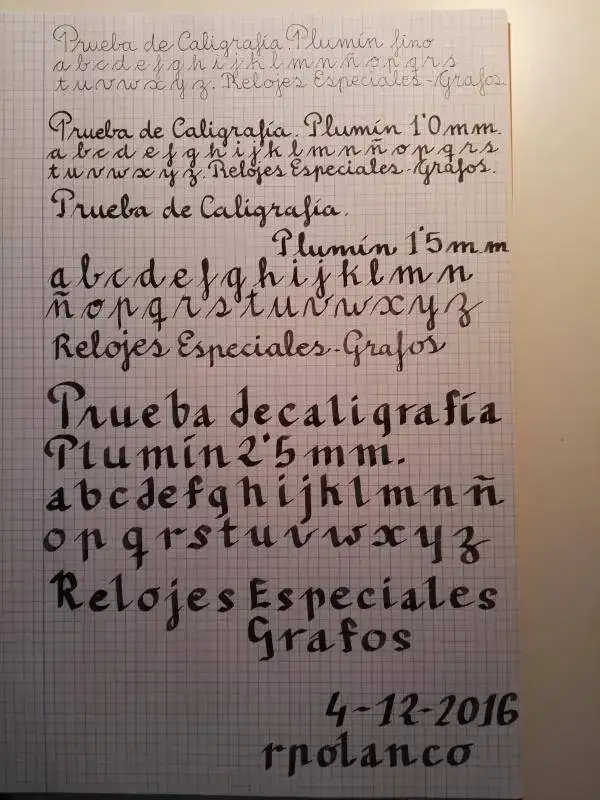 Prueba de Caligrafía. Plumín fino
a b c d e f g h i j k l m n ñ o p q r s
t u v w x y z. Relojes Especiales-Grafos.
Prueba de Caligrafía. Plumín 1'0 mm.
a b c d e f g h i j k l m n ñ o p q r s
t u v w x y z. Relojes Especiales-Grafos.
Prueba de Caligrafía.
Plumín 1'5 mm
a b c d e f g h i j k l m n
ñ o p q r s t u v w x y z
Relojes Especiales-Grafos
Prueba de caligrafía
Plumín 2'5 mm.
a b c d e f g h i j k l m n ñ
o p q r s t u v w x y z
Relojes Especiales
Grafos
4-12-2016
rpolanco